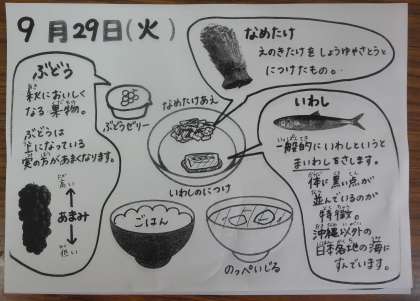 9月29日(火)
なめたけ
えのきたけをしょうゆやさとうと
につけたもの。
ぶどう
秋においしく
なる果物。
ぶどうは
上になっている
実の方があまくなります。
高い
あまみ
低い
ぶどうゼリー
なめたけあえ
いわしのにつけ
ごはん
のっぺいじる
いわし
一般的にいわしというと
まいわしをさします。
体に黒い点が
並んでいるのが
特徴。
沖縄以外の
日本各地の海に
すんでいます。